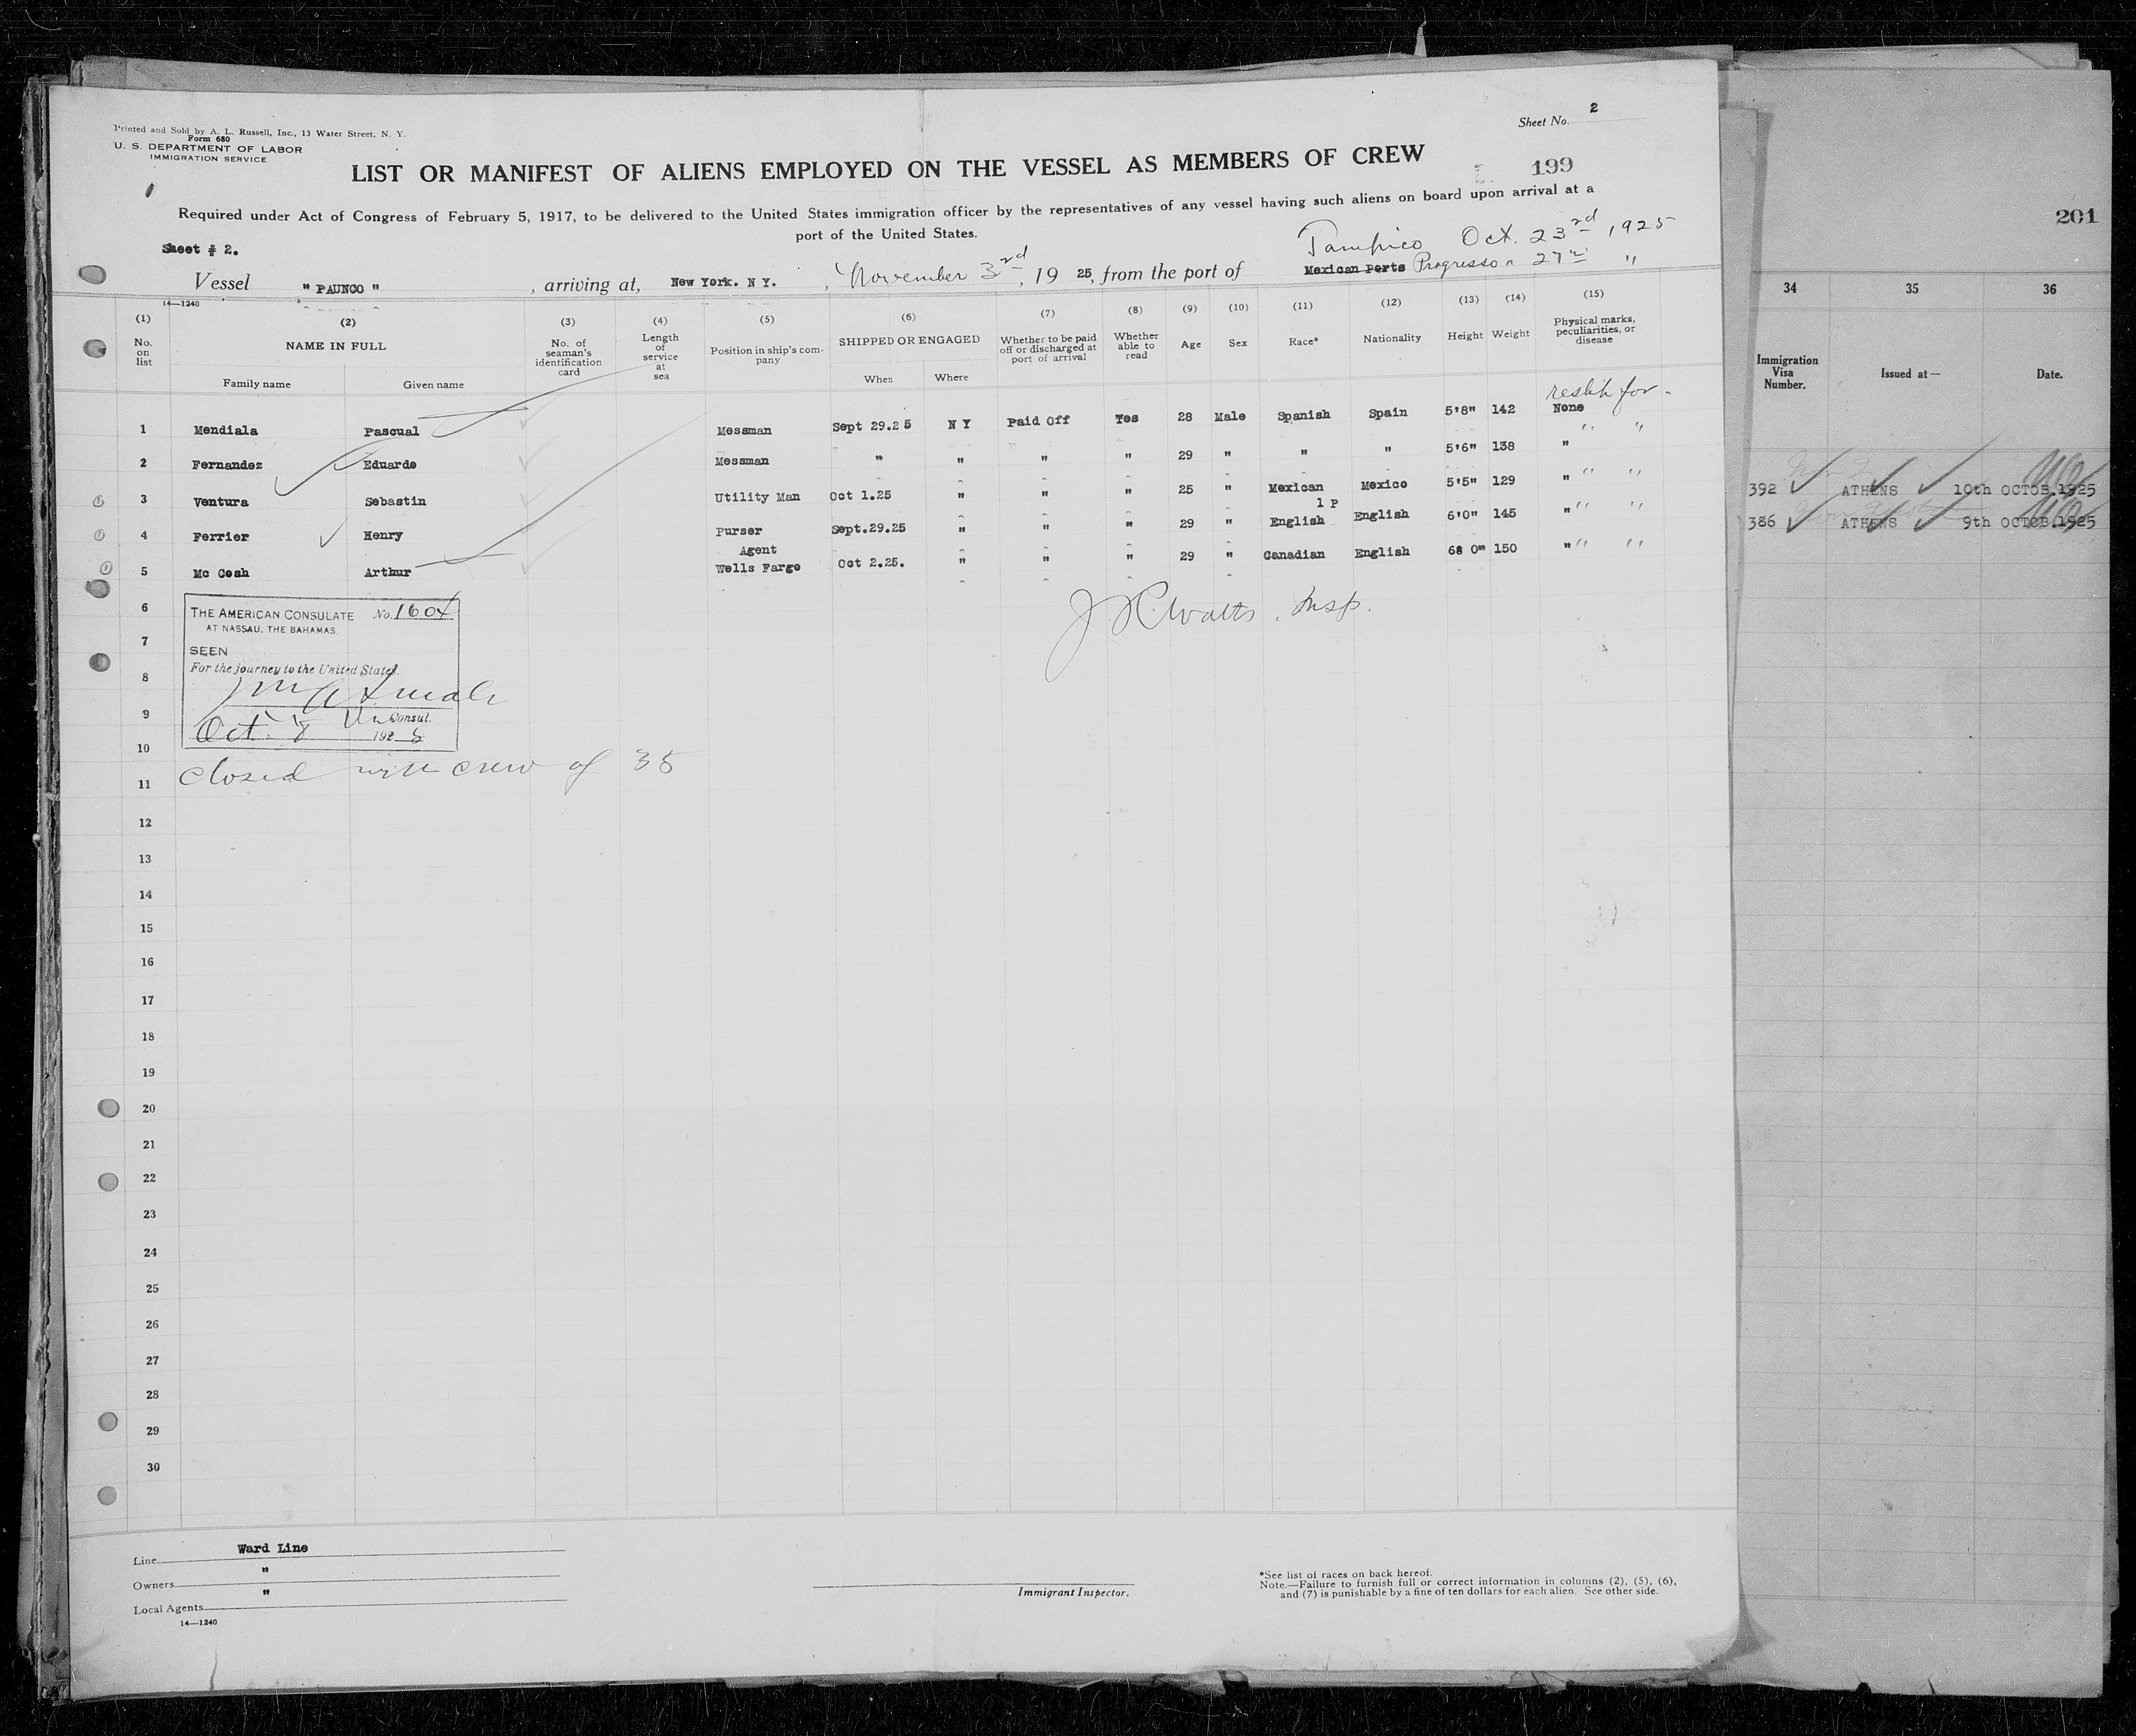 Printed and Sold by A. L. Russell, Inc., 13 Water Street, N. Y.
Form 680
U. S. DEPARTMENT OF LABOR
IMMIGRATION SERVICE
Sheet No. 2
LIST OR MANIFEST OF ALIENS EMPLOYED ON THE VESSEL AS MEMBERS OF CREW
199
Required under Act of Congress of February 5, 1917, to be delivered to the United States immigration officer by the representatives of any vessel having such aliens on board upon arrival at a
port of the United States.
Sheet # 2.
Tampico Oct. 23rd, 1925
Vessel " PAUNCO ", arriving at, New York. N Y., November 3rd, 19 25, from the port of Mexican Ports Progresso " 27 "
14—1240
(1) (2) (3) (4) (5) (6) (7) (8) (9) (10) (11) (12) (13) (14) (15)
No. on list
NAME IN FULL
Family name Given name
No. of seaman's identification card
Length of service at sea
Position in ship's company
SHIPPED OR ENGAGED
When Where
Whether to be paid off or discharged at port of arrival
Whether able to read
Age
Sex
Race*
Nationality
Height
Weight
Physical marks, peculiarities, or disease
1 Mendiala Pascual Messman Sept 29.25 N Y Paid Off Yes 28 Male Spanish Spain 5'8" 142 None
2 Fernandez Eduardo Messman " " " " 29 " " " 5'6" 138 " " "
3 Ventura Sebastin Utility Man Oct 1.25 " " " 25 " Mexican Mexico 5'5" 129 " " "
1 P
4 Ferrier Henry Purser Sept.29.25 " " " 29 " English English 6'0" 145 " " "
5 Mc Cosh Arthur Agent Wells Fargo Oct 2.25. " " " 29 " Canadian English 68 0" 150 " " "
6
7
8
9
10
11
12
13
14
15
16
17
18
19
20
21
22
23
24
25
26
27
28
29
30
THE AMERICAN CONSULATE No. 1604
AT NASSAU, THE BAHAMAS.
SEEN
For the journey to the United States.
Consul.
Oct. 8 1925
closed with crew of 35
J R Watts, Insp.
Line Ward Line
Owners "
Local Agents "
14—1240
Immigrant Inspector.
*See list of races on back hereof.
Note.—Failure to furnish full or correct information in columns (2), (5), (6),
and (7) is punishable by a fine of ten dollars for each alien. See other side.
201
34 35 36
Immigration Visa Number.
Issued at—
Date.
392 ATHENS 10th OCTOB.1925
386 ATHENS 9th OCTOB.1925